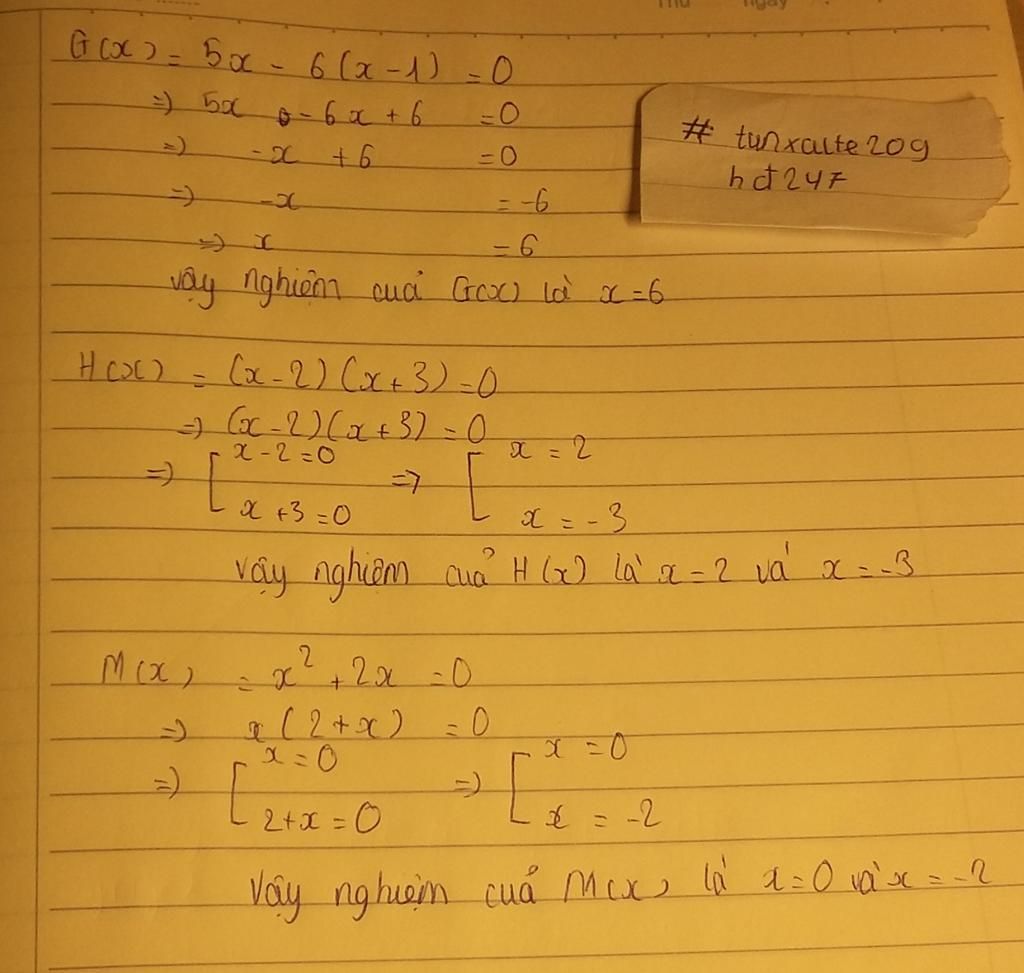 Thứ ngày
G(x) = 5x - 6(x-1) = 0
=> 5x - 6x + 6 = 0
=> -x + 6 = 0
=> -x = -6
=> x = 6
vậy nghiệm cuả G(x) là x=6
# tunxaite209
hđ247
H(x) = (x-2)(x+3)=0
=> (x-2)(x+3)=0
=> [ x-2=0 => [ x=2
x+3=0 x=-3
vậy nghiệm cuả H(x) là x=2 và x=-3
M(x) = x² + 2x = 0
=> x(2+x) = 0
=> [ x=0 => [ x=0
2+x=0 x=-2
Vậy nghiệm cuả M(x) là x=0 và x=-2